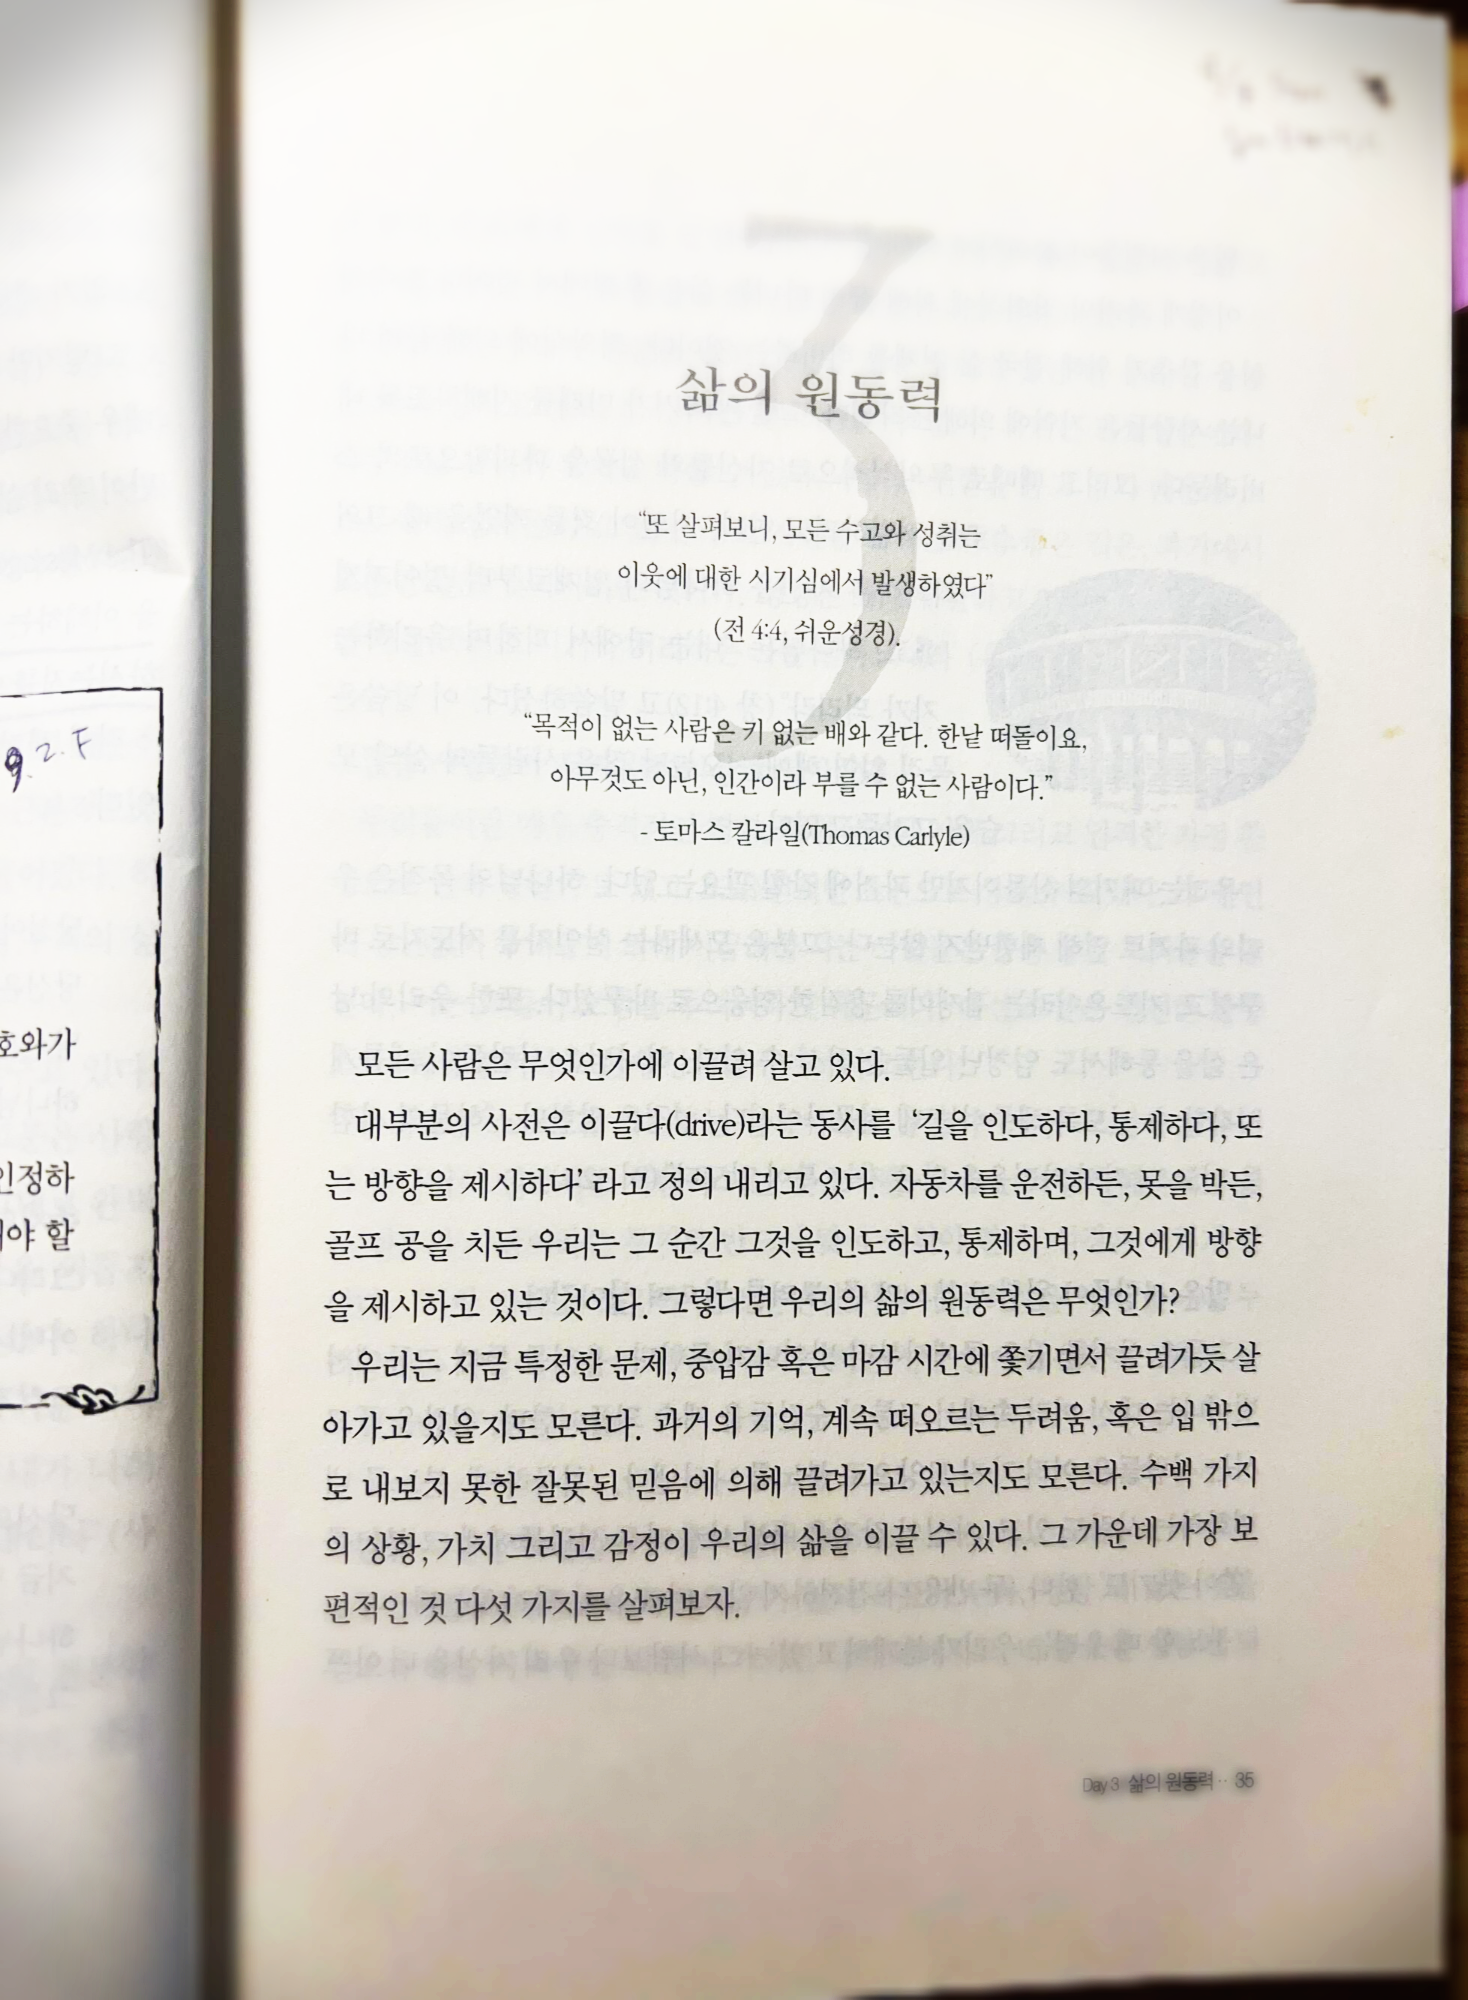 9.2.F
호와가
인정하
야 할
3
삶의 원동력
“또 살펴보니, 모든 수고와 성취는
이웃에 대한 시기심에서 발생하였다”
(전 4:4, 쉬운성경).
“목적이 없는 사람은 키 없는 배와 같다. 한낱 떠돌이요,
아무것도 아닌, 인간이라 부를 수 없는 사람이다.”
- 토마스 칼라일(Thomas Carlyle)
모든 사람은 무엇인가에 이끌려 살고 있다.
대부분의 사전은 이끌다(drive)라는 동사를 ‘길을 인도하다, 통제하다, 또
는 방향을 제시하다’ 라고 정의 내리고 있다. 자동차를 운전하든, 못을 박든,
골프 공을 치든 우리는 그 순간 그것을 인도하고, 통제하며, 그것에게 방향
을 제시하고 있는 것이다. 그렇다면 우리의 삶의 원동력은 무엇인가?
우리는 지금 특정한 문제, 중압감 혹은 마감 시간에 쫓기면서 끌려가듯 살
아가고 있을지도 모른다. 과거의 기억, 계속 떠오르는 두려움, 혹은 입 밖으
로 내보지 못한 잘못된 믿음에 의해 끌려가고 있는지도 모른다. 수백 가지
의 상황, 가치 그리고 감정이 우리의 삶을 이끌 수 있다. 그 가운데 가장 보
편적인 것 다섯 가지를 살펴보자.
Day 3 삶의 원동력 ·· 35